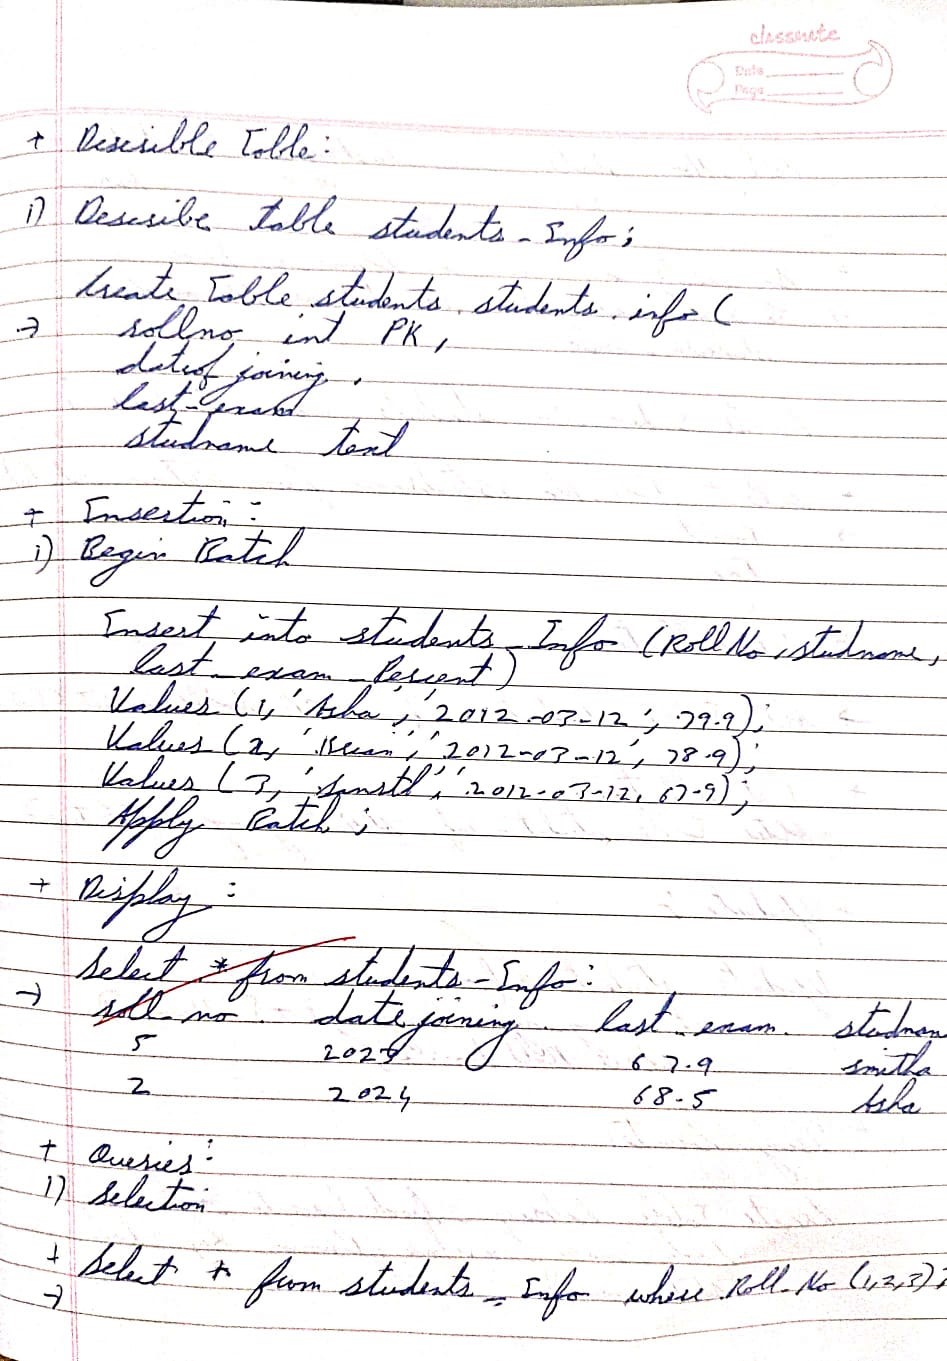 classmate
Date
Page
+ Describle Table:
i) Describe table students - Info;
Create Table students. students. info (
→ rollno int PK,
dateof joining,
last-exam
studname text
+ Insertion:
i) Begin Batch
Insert into students_Info (Roll No, studname,
last_exam_Percent)
Values (1, 'Asha', '2012-03-12', 79.9);
Values (2, ' ', '2012-03-12', 78.9);
Values (3, ' ', '2012-03-12, 67-9);
Apply Batch;
+ Display:
Select * from students-Info:
→ roll no. date joining. last exam. studnam
5 2023 67.9 smitha
2 2024 68.5 Asha
+ Queries:
1) Selection
+ Select * from students_Info where Roll-No (1,2,3);
→